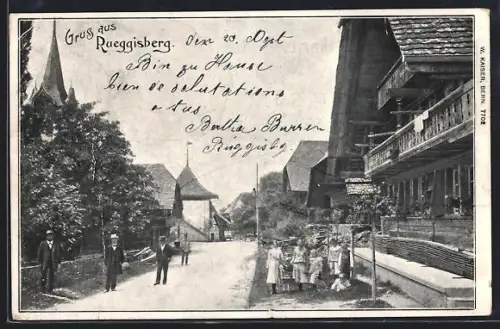 Gruss aus
Rueggisberg. Den 20. Sept
Bin zu Hause
bien de salutations
a tus
Bertha Burren
Rüggisbg
W. KAISER, BERN. 7702